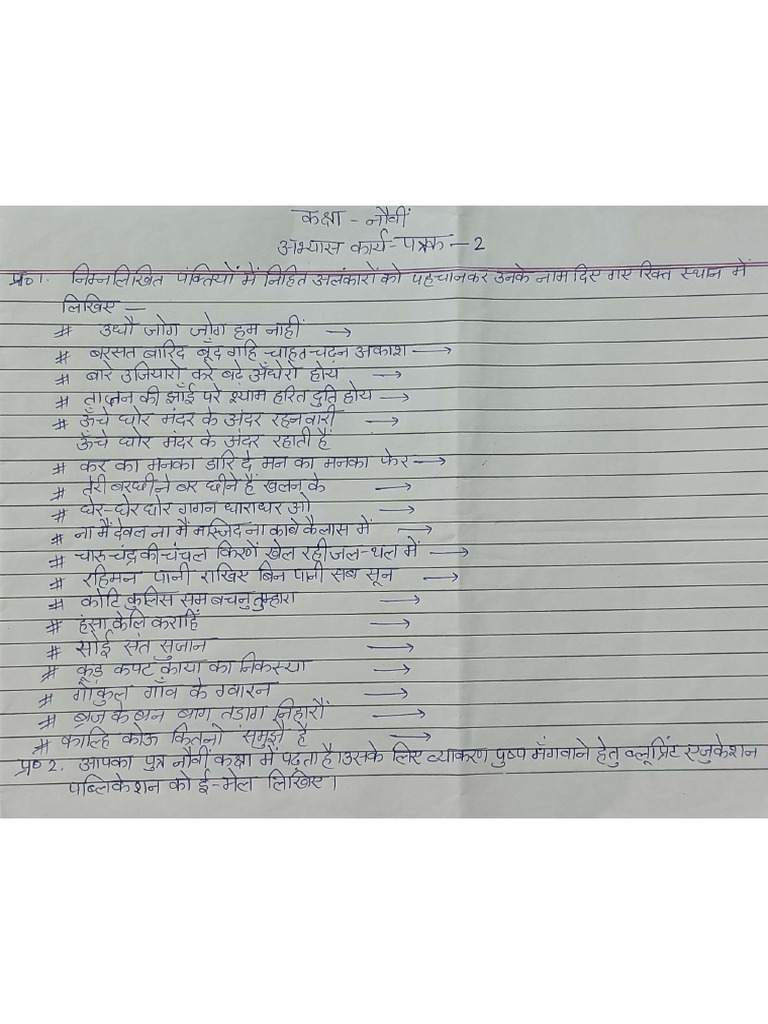 कक्षा - नौवीं
अभ्यास कार्य- पत्रक - 2
प्र०1. निम्नलिखित पंक्तियों में निहित अलंकारों को पहचानकर उनके नाम दिए गए रिक्त स्थान में
लिखिए —
# उधौ जोग जोग हम नाहीं →
# बरसत बारिद बूँद गहि चाहत चढ़न अकाश →
# बारे उजियारो करे बढ़े अँधेरो होय →
# ता तन की झाँई परे श्याम हरित दुति होय →
# ऊँचे घोर मंदर के अंदर रहन वारी →
ऊँचे घोर मंदर के अंदर रहाती हैं
# कर का मनका डारि दे मन का मनका फेर →
# तेरी बरछी ने बर छीने हैं खलन के →
# घेर-घेर घोर गगन धाराधर ओ →
# ना मैं देवल ना मैं मस्जिद ना काबे कैलास में →
# चारु चंद्र की चंचल किरणें खेल रही जल-थल में →
# रहिमन पानी राखिए बिन पानी सब सून →
# कोटि कुलिस सम बचनु तुम्हारा →
# हंसा केलि कराहिं →
# सोई संत सुजान →
# कूड़ कपट काया का निकस्या →
# गोकुल गाँव के ग्वारन →
# ब्रज के बन बाग तड़ाग निहारौं →
# काल्हि कोऊ कितनो समुझै है →
प्र० 2. आपका पुत्र नौवीं कक्षा में पढ़ता है। उसके लिए व्याकरण पुष्प मँगवाने हेतु ब्लूप्रिंट एजुकेशन
पब्लिकेशन को ई-मेल लिखिए।